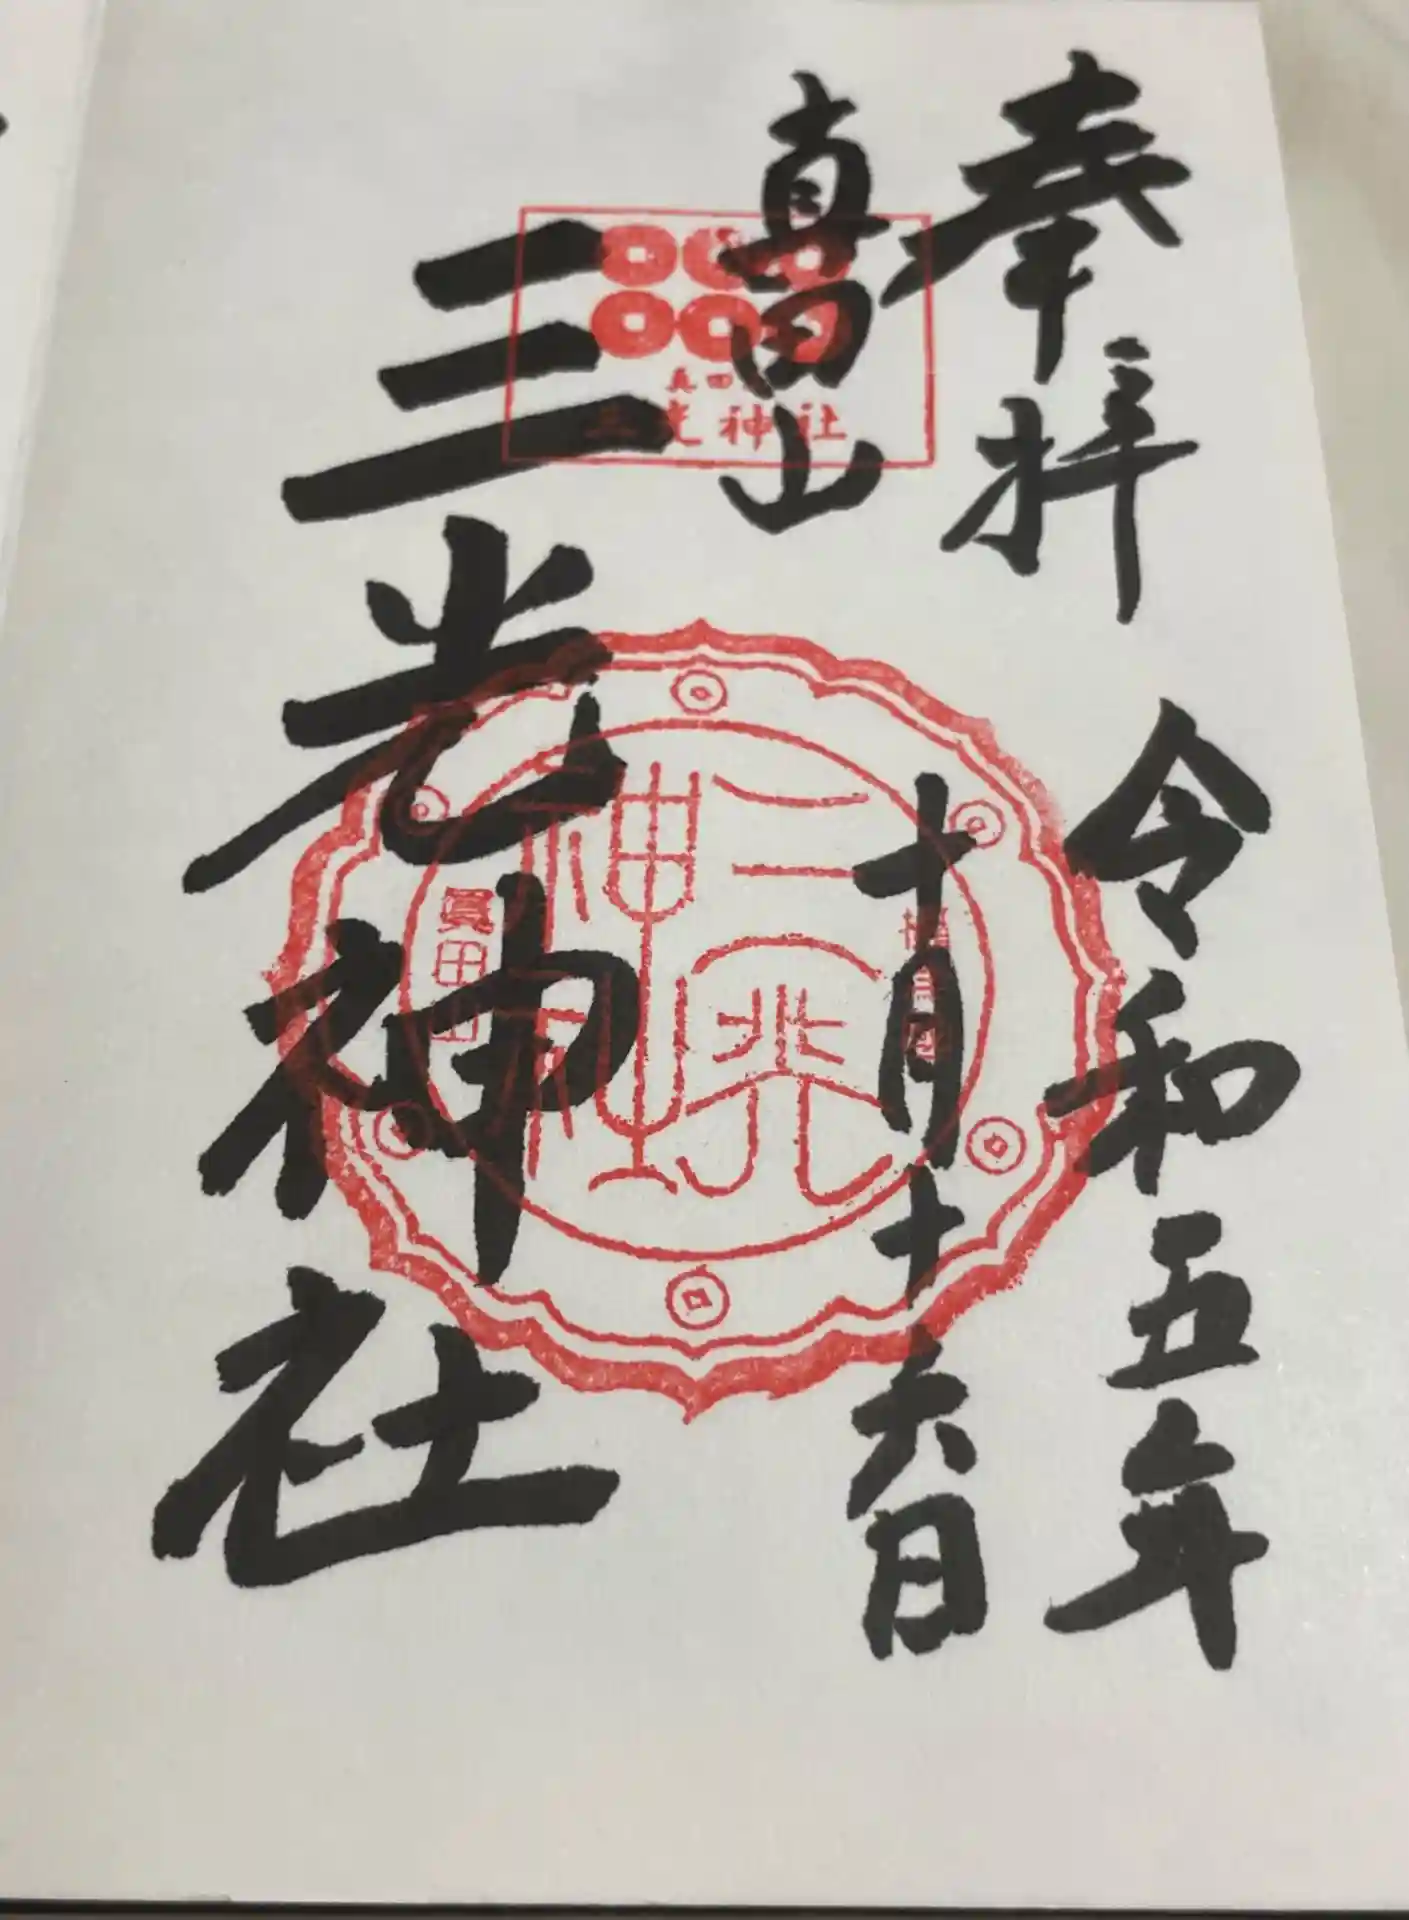 奉拝
令和五年
十月十六日
真田山
三光神社
真田
三光神社
三光
神社
眞田山